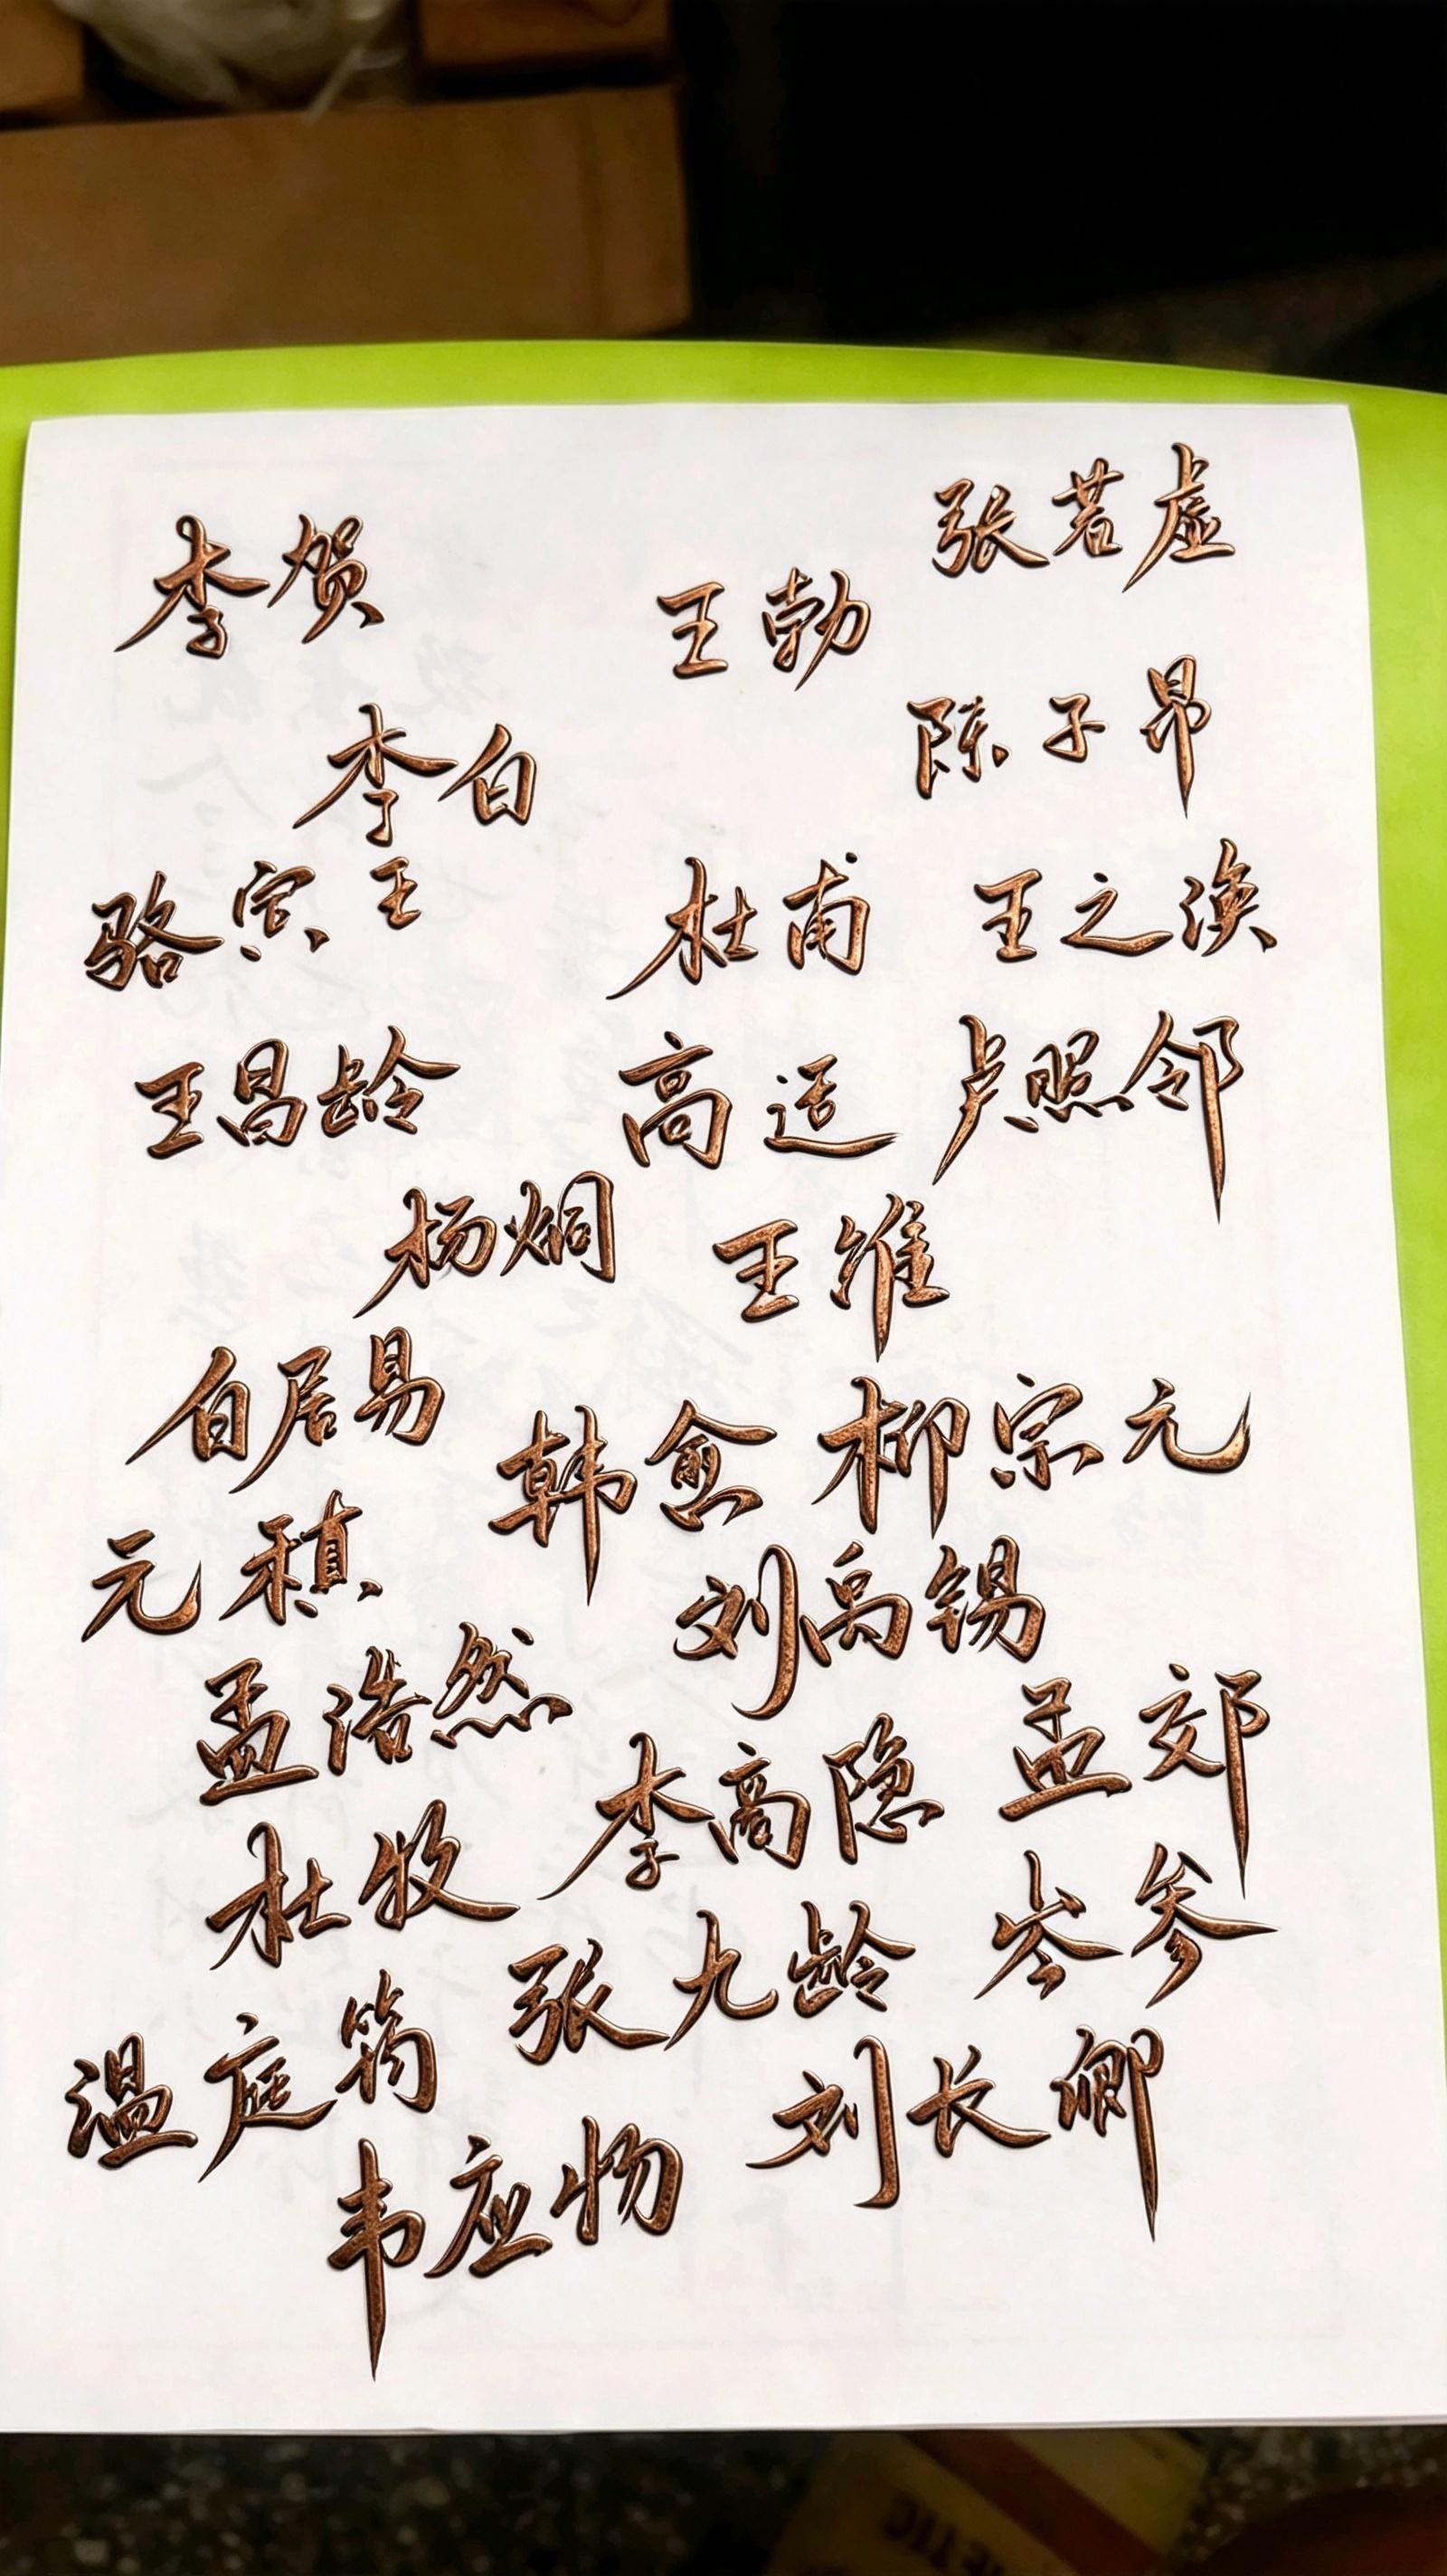 李贺 王勃 张若虚
李白 陈子昂
骆宾王 杜甫 王之涣
王昌龄 高适 卢照邻
杨炯 王维
白居易 韩愈 柳宗元
元稹 刘禹锡
孟浩然 李商隐 孟郊
杜牧 张九龄 岑参
温庭筠 刘长卿
韦应物